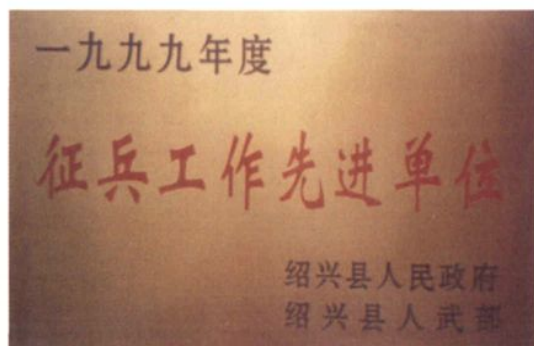 一九九九年度
征兵工作先进单位
绍兴县人民政府
绍兴县人武部